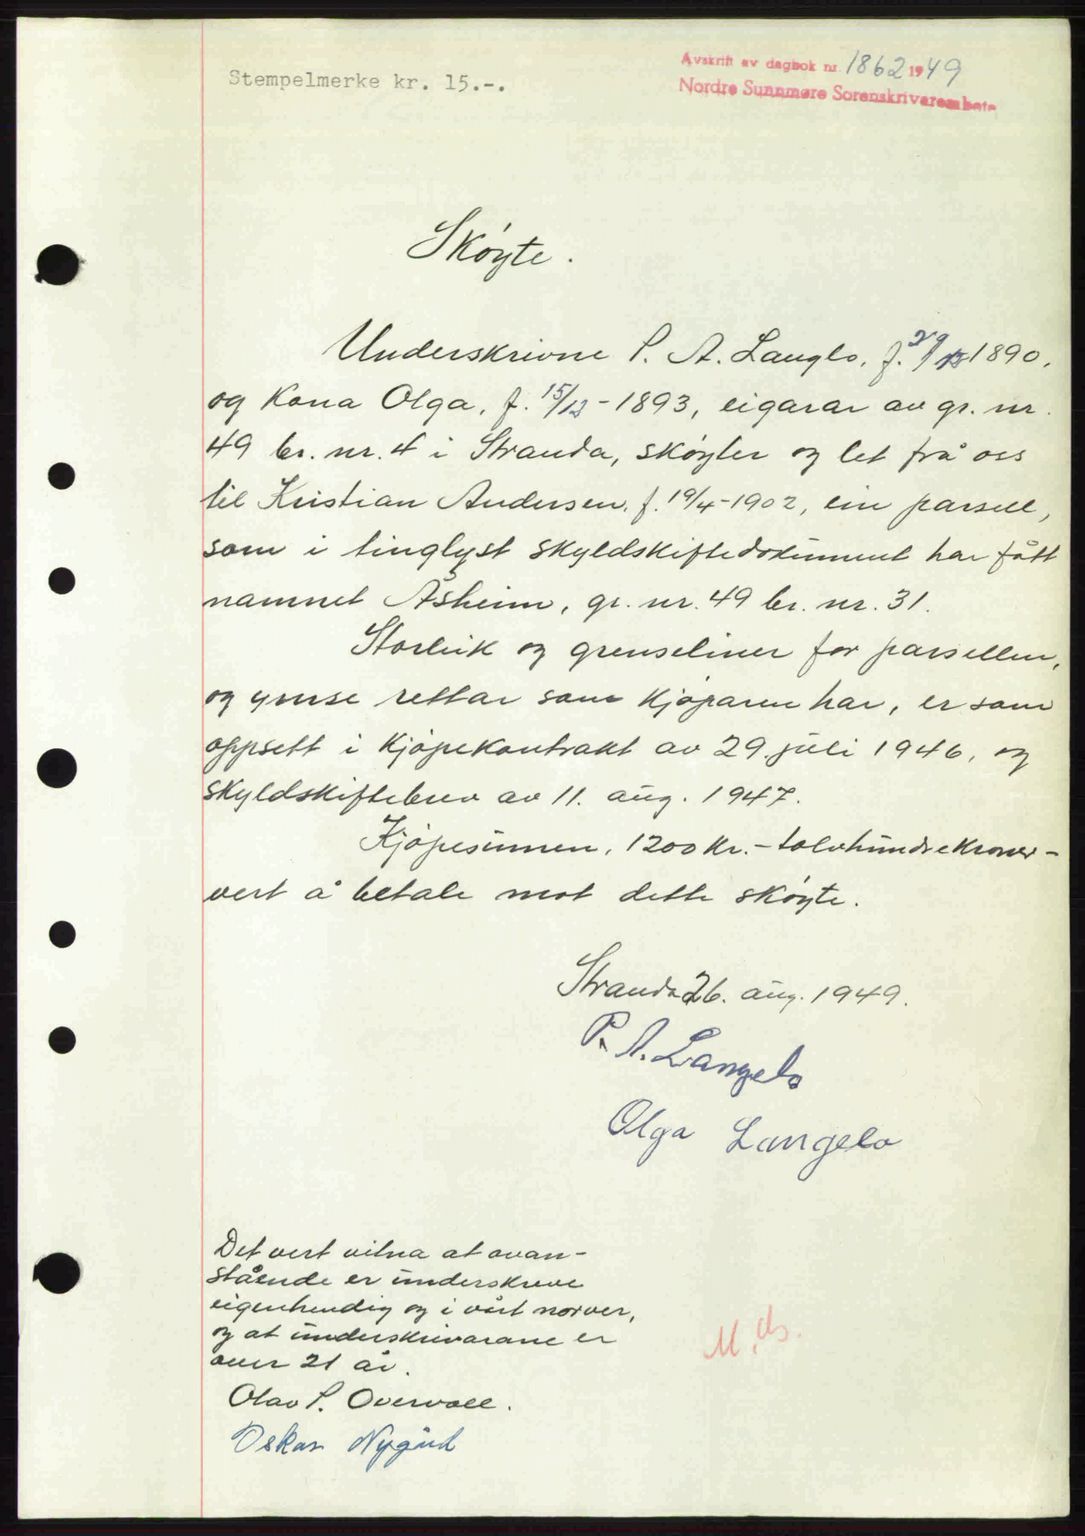 Stempelmerke kr. 15.-.
Avskrift av dagbok nr. 1862 1949
Nordre Sunnmøre Sorenskrivarembete
Skøyte.
Underskrivne P. A. Langlo, f. 29/12 1890,
og Kona Olga, f. 15/12 - 1893, eigarar av gr. nr.
49 br. nr. 4 i Stranda, skøyter og let frå oss
til Kristian Andersen, f. 19/4 - 1902, ein parsell,
som i tinglyst skyldskiftedokument har fått
namnet Åsheim, gr. nr. 49 br. nr. 31.
Storleik og grenseliner for parsellen,
og ymse rettar som kjøparen har, er som
oppsett i kjøpekontrakt av 29. juli 1946, og
skyldskiftebrev av 11. aug. 1947.
Kjøpesummen, 1200 kr. - tolvhundrekroner -
vert å betale mot dette skøyte.
Stranda 26. aug. 1949.
P. A. Langelo
Olga Langelo
Det vert vitna at ovan-
stående er underskreve
eigenhendig og i vårt norver,
og at underskrivarane er
over 21 år.
Olav P. Overvoll.
Oskar Nygård